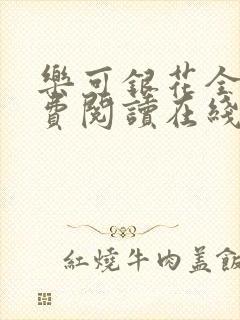 樂可銀花全
費閱讀在綫
紅燒牛肉盖飯